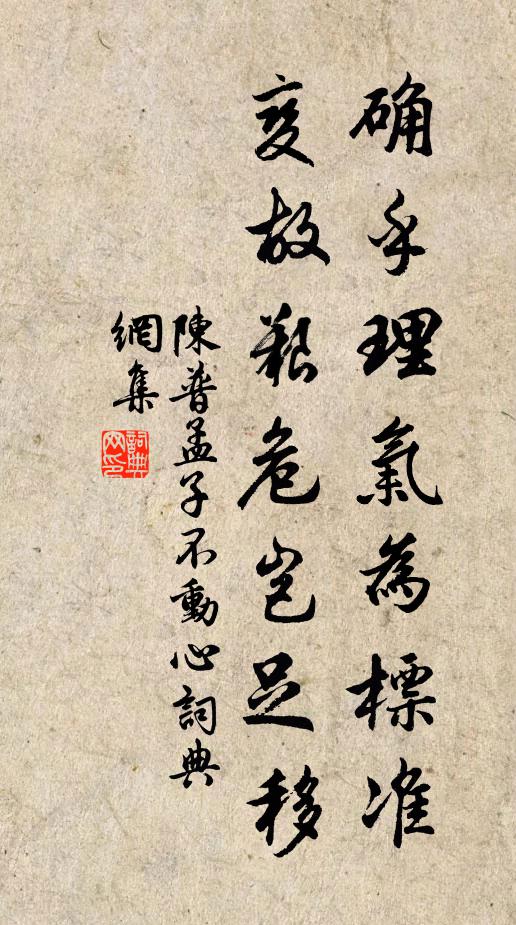 确乎理氣為標准
变故艱危岂足移
陳普孟子不動心詞典
網集
詞典網印